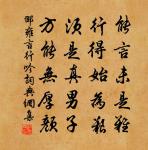 能言未是難
行得始為艱
須是真男子
方能無厚顏
邵雍言行吟詞典網集